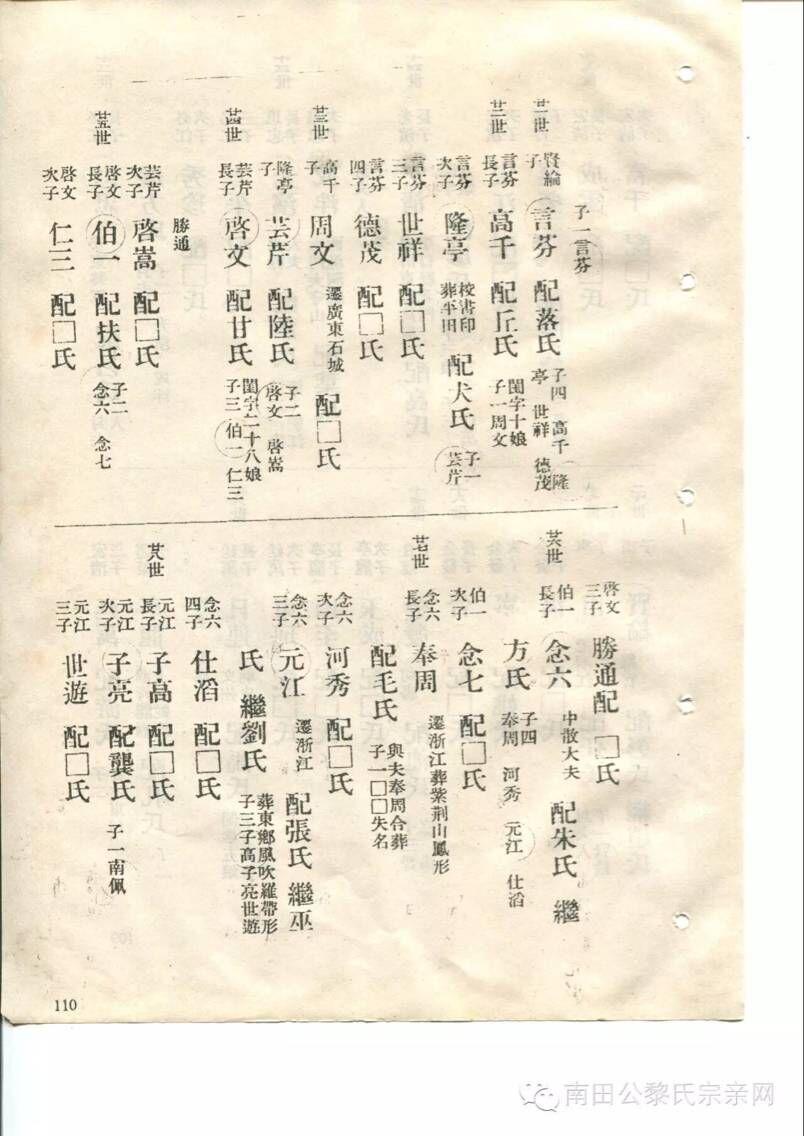 子一言芬
廿一世 賢綸子 言芬 配落氏 子四 高千 隆亭 世祥 德茂
廿二世 言芬長子 高千 配丘氏 閨字十娘 子一周文
言芬次子 隆亭 校書印 葬平田 配犬氏 子一芸芹
言芬三子 世祥 配□氏
言芬四子 德茂 配□氏
廿三世 高千子 周文 遷廣東石城 配□氏
隆亭子 芸芹 配陸氏 子二 啓文 啓嵩
廿四世 芸芹長子 啓文 配甘氏 閨字二十八娘 子三 伯一 仁三
勝通
芸芹次子 啓嵩 配□氏
廿五世 啓文長子 伯一 配扶氏 子二 念六 念七
啓文次子 仁三 配□氏
啓文三子 勝通配 □氏
廿六世 伯一長子 念六 中散大夫 配朱氏 繼
方氏 子四 奉周 河秀 元江 仕滔
伯一次子 念七 配□氏
廿七世 念六長子 奉周 遷浙江葬紫荆山鳳形
配毛氏 與夫奉周合葬 子一□□失名
念六次子 河秀 配□氏
念六三子 元江 遷浙江 配張氏 繼巫
氏 繼劉氏 葬東鄉風吹羅帶形 子三子高子亮世遊
念六四子 仕滔 配□氏
廿八世 元江長子 子高 配□氏
元江次子 子亮 配龔氏 子一南佩
元江三子 世遊 配□氏
110
南田公黎氏宗亲网